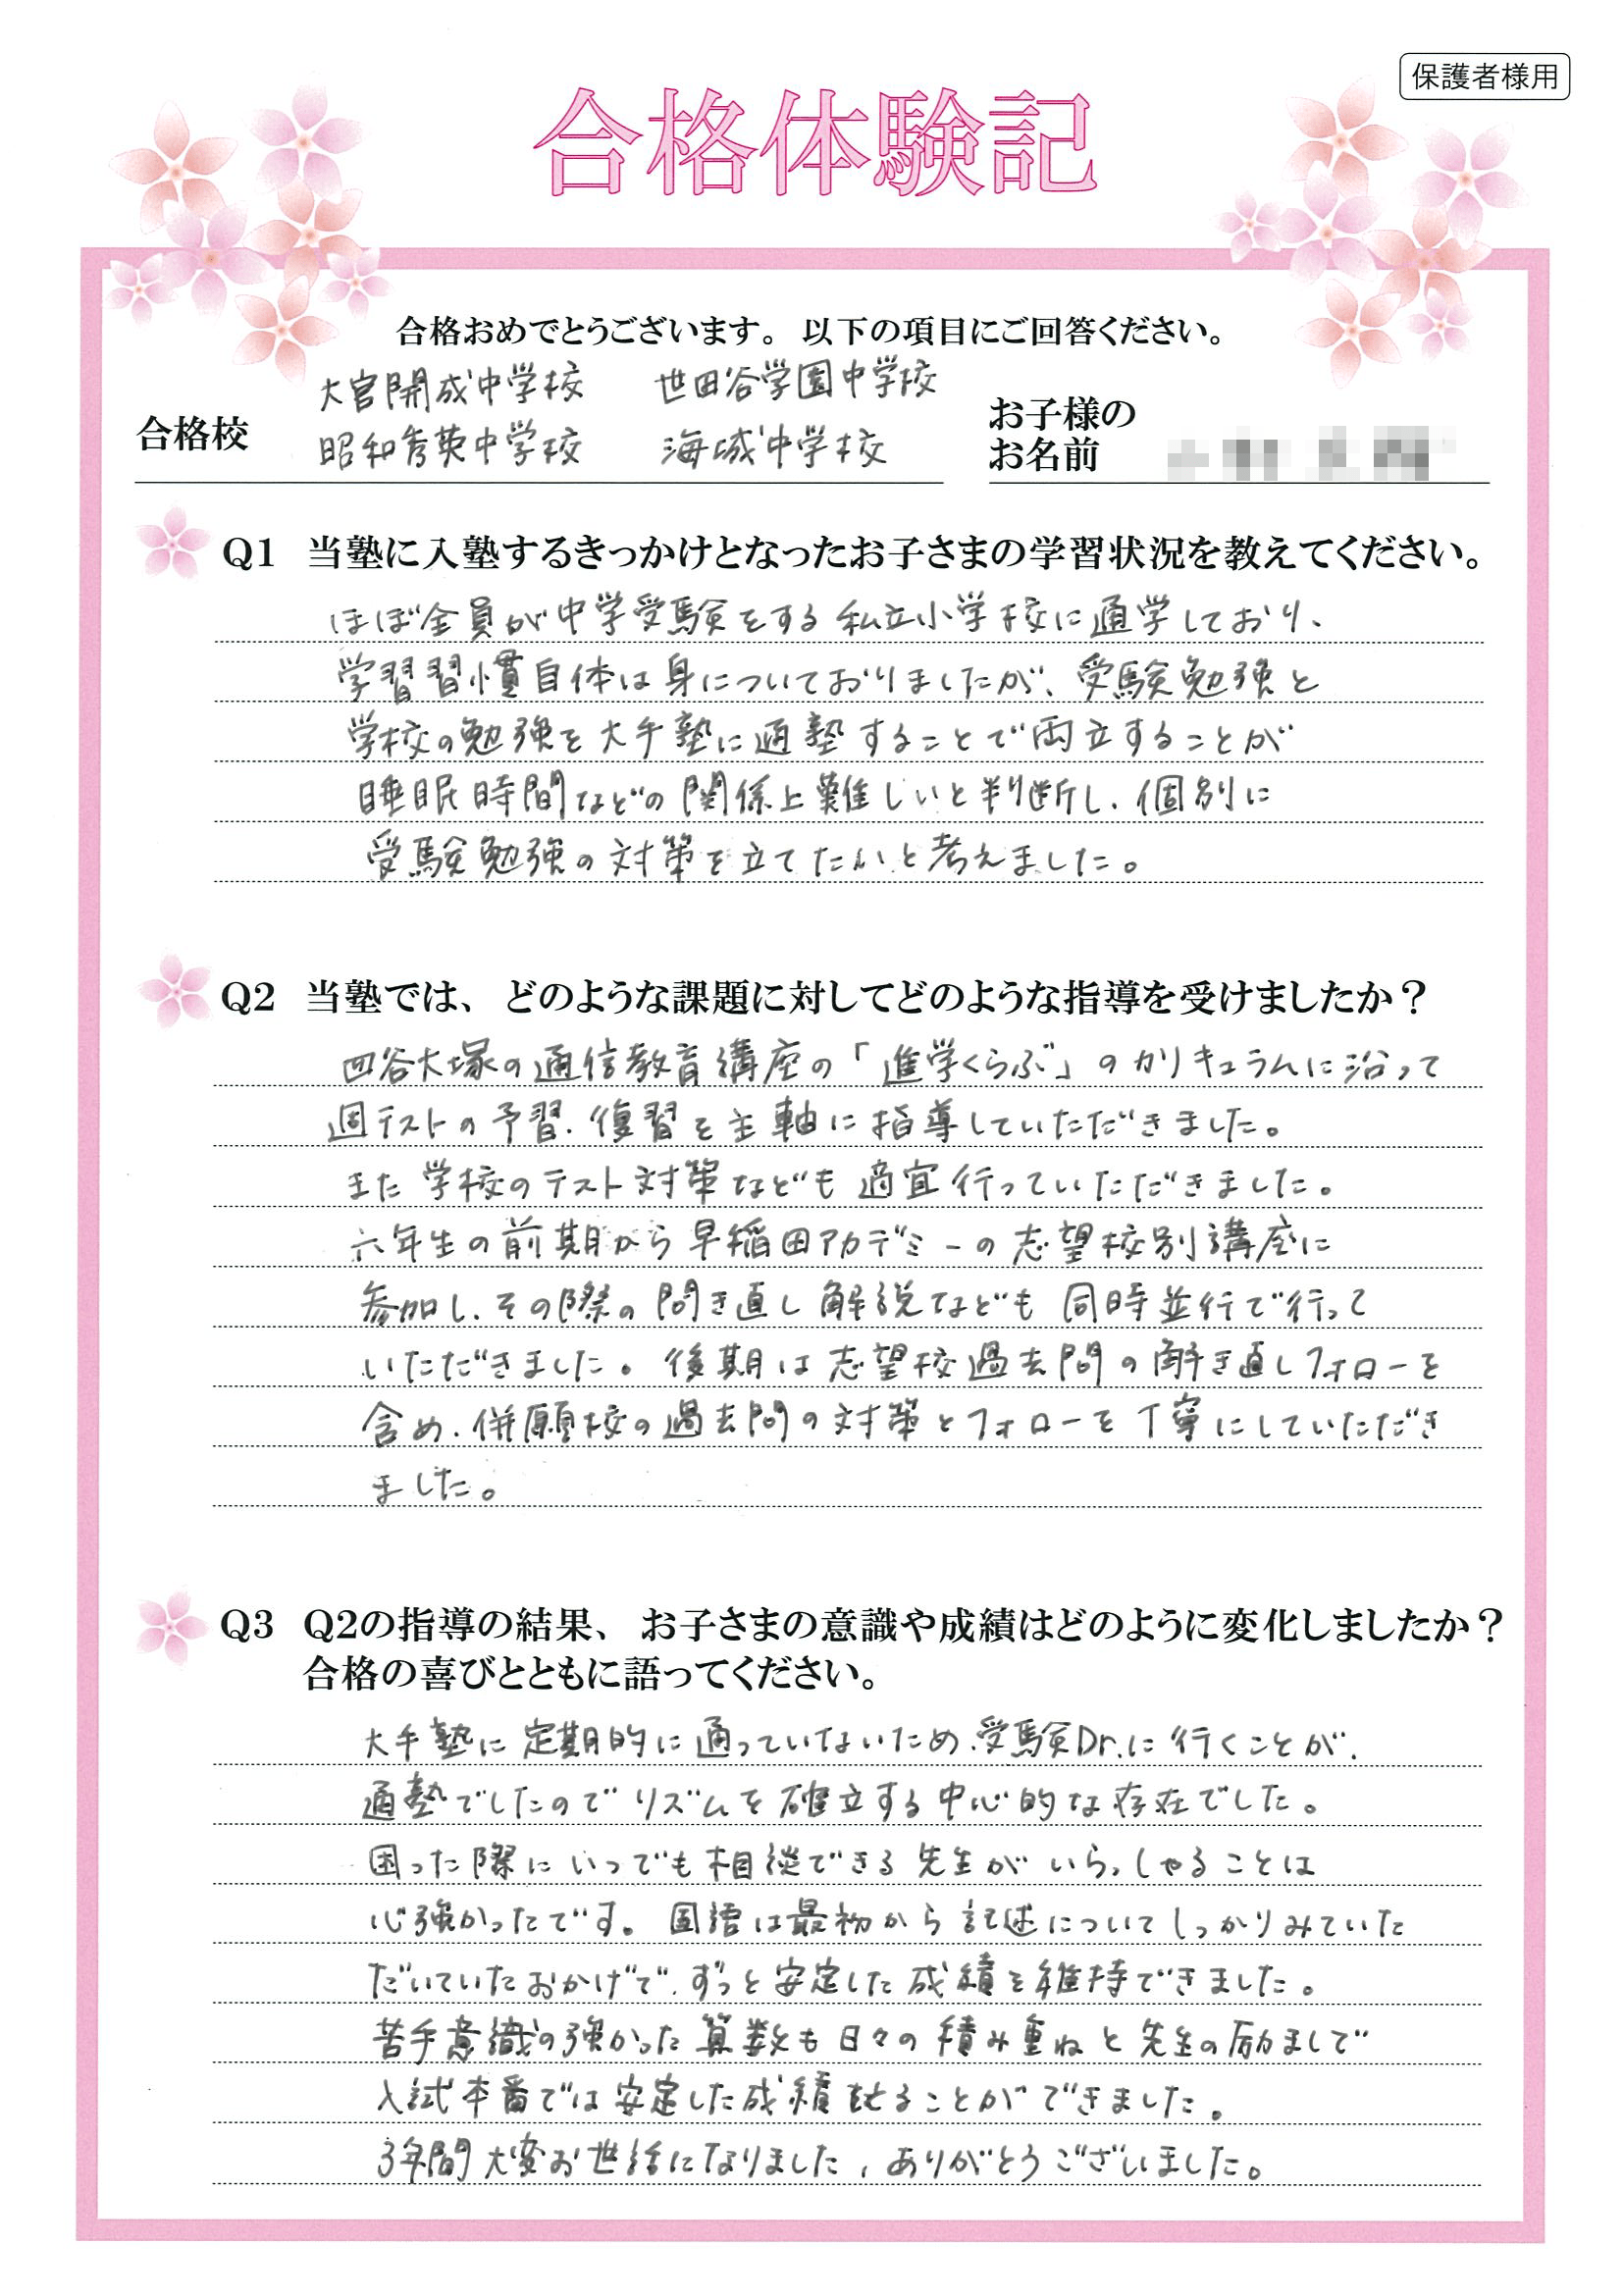 保護者様用
合格体験記
合格おめでとうございます。 以下の項目にご回答ください。
大宮開成中学校 世田谷学園中学校
合格校 昭和秀英中学校 海城中学校
お子様の
お名前
Q1 当塾に入塾するきっかけとなったお子さまの学習状況を教えてください。
ほぼ全員が中学受験をする私立小学校に通学しており、
学習習慣自体は身についておりましたが、受験勉強と
学校の勉強を大手塾に通塾することで両立することが
睡眠時間などの関係上難しいと判断し、個別に
受験勉強の対策を立てたいと考えました。
Q2 当塾では、どのような課題に対してどのような指導を受けましたか？
四谷大塚の通信教育講座の「進学くらぶ」のカリキュラムに沿って
週テストの予習、復習を主軸に指導していただきました。
また学校のテスト対策なども適宜行っていただきました。
六年生の前期から早稲田アカデミーの志望校別講座に
参加し、その際の問き直し解説なども同時並行で行って
いただきました。後期は志望校過去問の解き直しフォローを
含め、併願校の過去問の対策とフォローを丁寧にしていただき
ました。
Q3 Q2の指導の結果、お子さまの意識や成績はどのように変化しましたか？
合格の喜びとともに語ってください。
大手塾に定期的に通っていないため、受験Dr.に行くことが、
通塾でしたのでリズムを確立する中心的な存在でした。
困った際にいつでも相談できる先生がいらっしゃることは
心強かったです。国語は最初から記述についてしっかりみていた
だいていたおかげで、ずっと安定した成績を維持できました。
苦手意識の強かった算数も日々の積み重ねと先生の励ましで
入試本番では安定した成績をとることができました。
3年間大変お世話になりました、ありがとうございました。